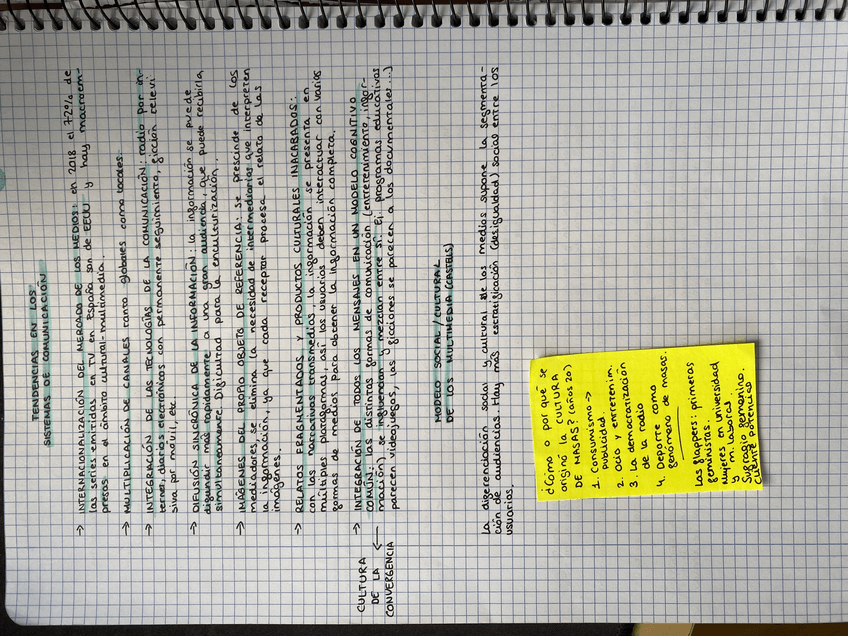 TENDENCIAS EN LOS
SISTEMAS DE COMUNICACIÓN
→ INTERNACIONALIZACIÓN DEL MERCADO DE LOS MEDIOS: en 2018 el 72% de
las series emitidas en TV en España son de EEUU y hay macroem-
presas en el ámbito cultural-multimedia.
→ MULTIPLICACIÓN DE CANALES tanto globales como locales.
→ INTEGRACIÓN DE LAS TECNOLOGÍAS DE LA COMUNICACIÓN: radio por in-
ternet, diarios electrónicos con permanente seguimiento, ficción televi
siva por móvil, etc.
→ DIFUSIÓN SINCRÓNICA DE LA INFORMACIÓN: la información se puede
difundir más rápidamente a una gran audiencia, que puede recibirla
simultáneamente. Dificultad para la enculturización.
→ IMÁGENES DEL PROPIO OBJETO DE REFERENCIA: se prescinde de los
mediadores, se elimina la necesidad de intermediarios que interpreten
la información, ya que cada receptor procesa el relato de las
imágenes.
→ RELATOS FRAGMENTADOS Y PRODUCTOS CULTURALES INACABADOS:
con las narrativas transmedias, la información se presenta en
múltiples plataformas, así los usuarios deben interactuar con varias
formas de medios para obtener la información completa.
→ INTEGRACIÓN DE TODOS LOS MENSAJES EN UN MODELO COGNITIVO
COMÚN: las distintas formas de comunicación (entretenimiento, infor-
mación) se influencian y mezclan entre sí. Ej: programas educativos
parecen videojuegos, las ficciones se parecen a los documentales...)
CULTURA
DE LA ←
CONVERGENCIA
MODELO SOCIAL/CULTURAL
DE LOS MULTIMEDIA (CASTELLS)
La diferenciación social y cultural de los medios supone la segmenta-
ción de audiencias. Hay más estratificación (desigualdad) social entre los
usuarios.
¿Cómo o por qué se
originó la CULTURA
DE MASAS? (años 20)
1. Consumismo →
publicidad
2. Ocio y entretenim.
3. La democratización
de la radio
4. Deporte como
fenómeno de masas.
Las flappers: primeras
feministas.
Mujeres en universidad
y m. laboral
Sufragio femenino.
CLIENTE POTENCIAL